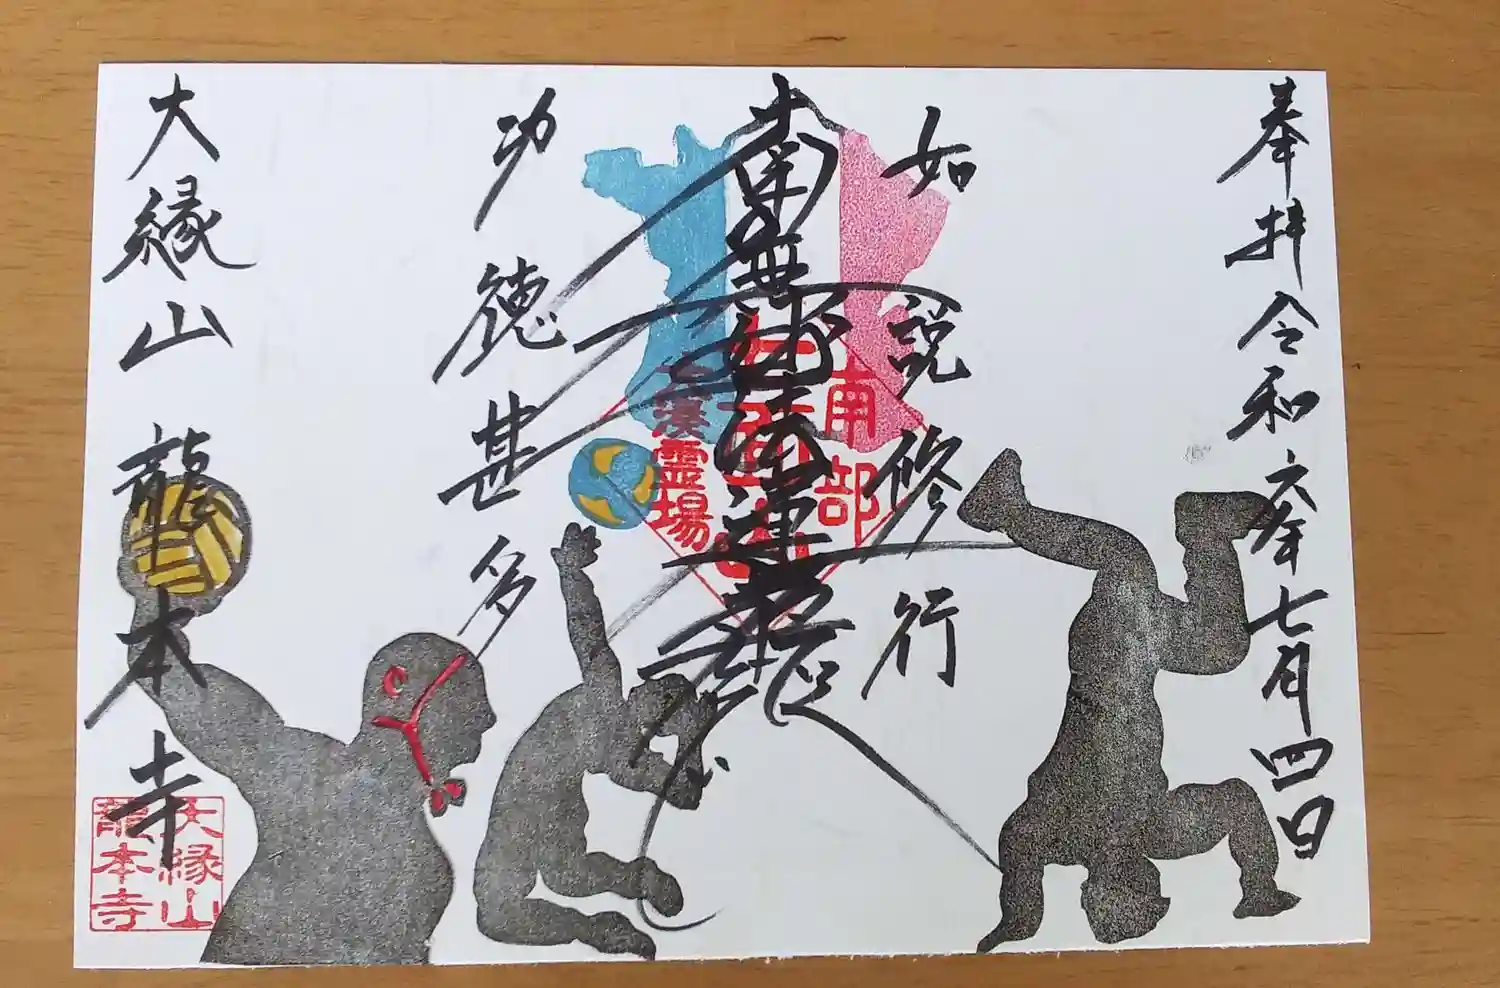 奉拝 令和六年七月四日
如説修行
南無妙法蓮華経
功徳甚多
大縁山 龍本寺
南部
七面山
古湊霊場
大縁山
龍本寺